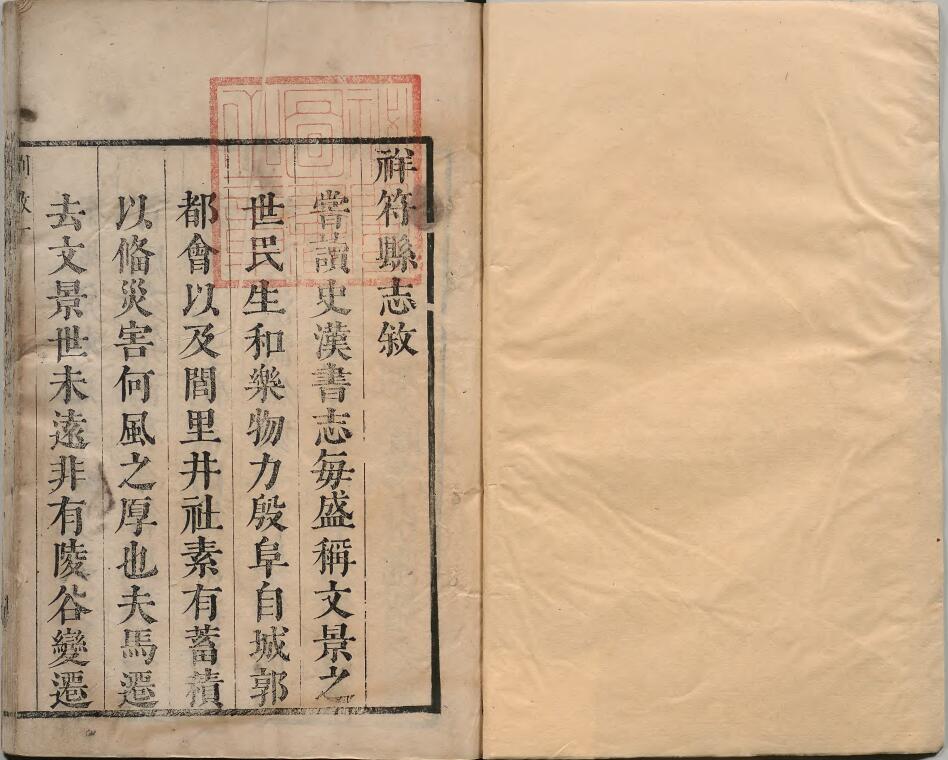 祥符縣志敘
嘗讀史漢書志每盛稱文景之
世民生和樂物力殷阜自城郭
都會以及閭里井社素有蓄積
以偹災害何風之厚也夫馬遷
去文景世未遠非有陵谷變遷